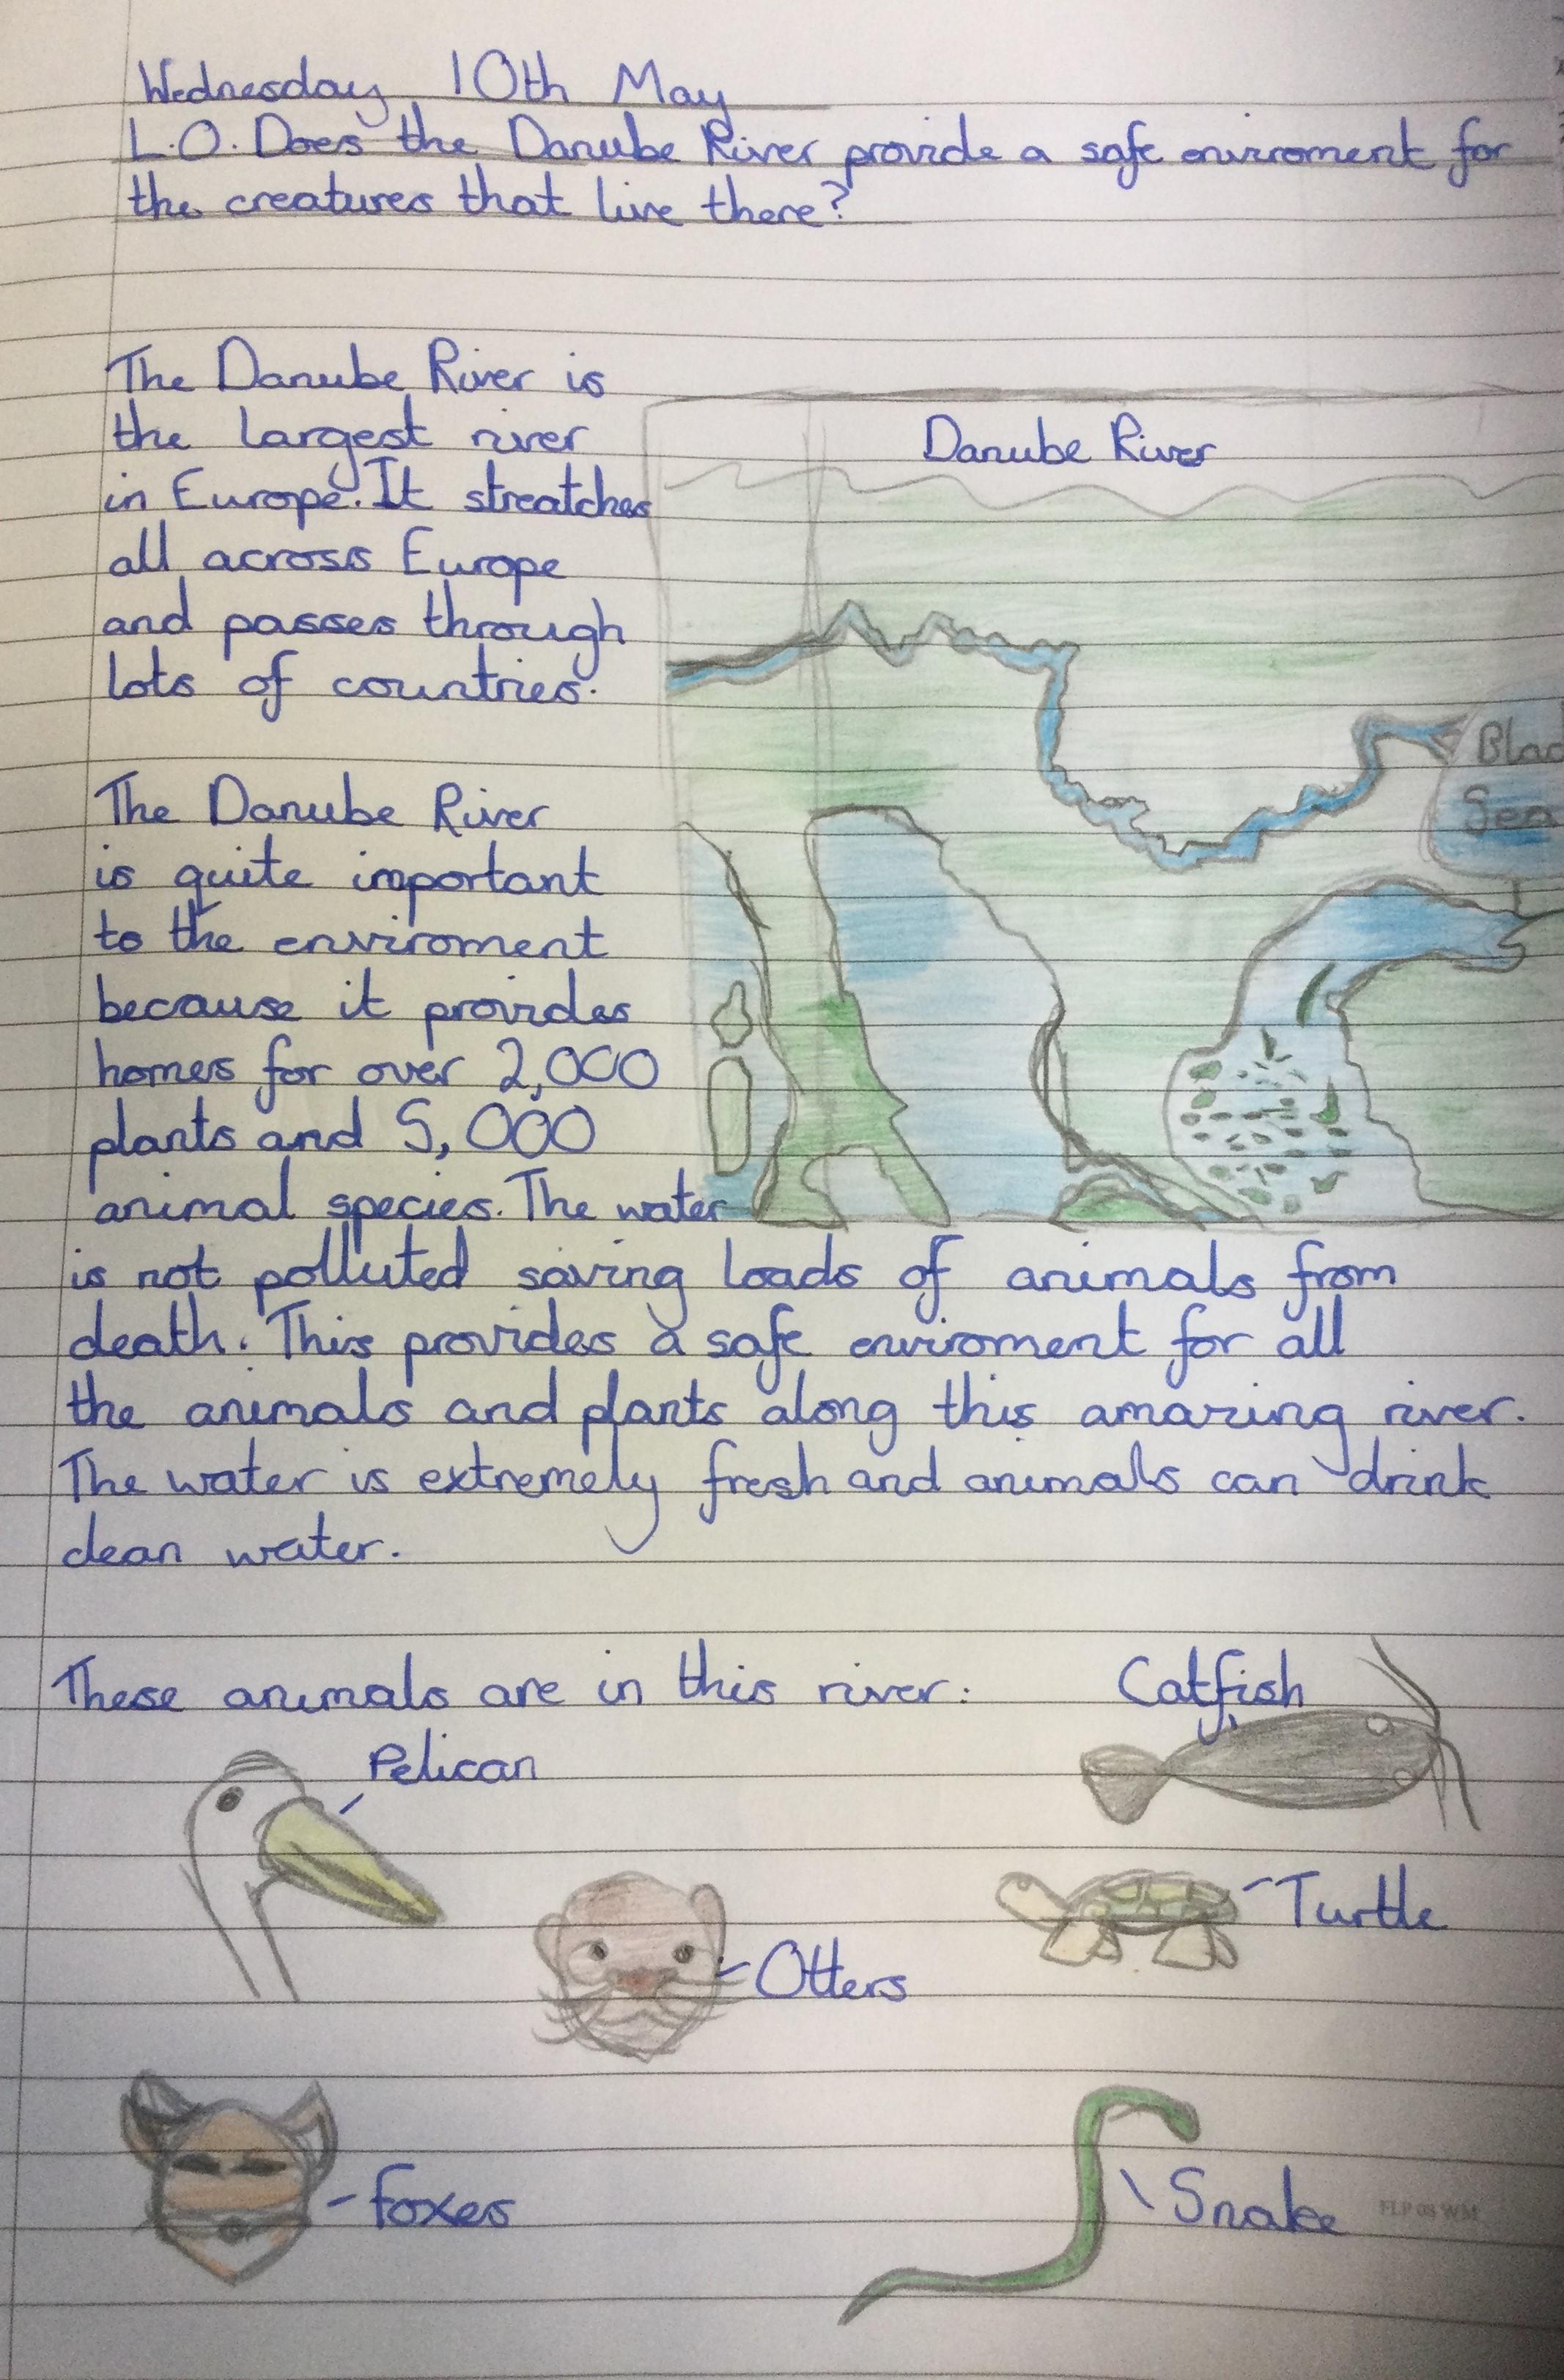 Wednesday 10th May
L.O. Does the Danube River provide a safe enviroment for
the creatures that live there?
The Danube River is
the largest river
in Europe. It streatches
all across Europe
and passes through
lots of countries.
Danube River
Blac
Sea
The Danube River
is quite important
to the enviroment
because it provides
homes for over 2,000
plants and 5,000
animal species. The water
is not polluted saving loads of animals from
death. This provides a safe enviroment for all
the animals and plants along this amazing river.
The water is extremely fresh and animals can drink
clean water.
These animals are in this river:
Catfish
Pelican
Turtle
Otters
Foxes
Snake
FLP 08 WM